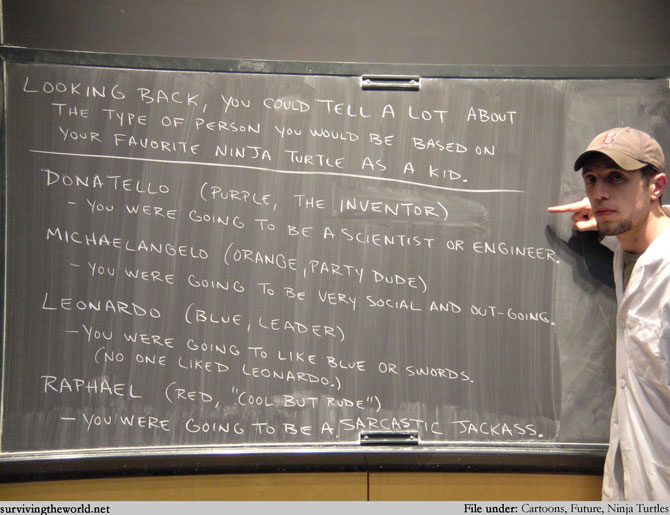 LOOKING BACK, YOU COULD TELL A LOT ABOUT
THE TYPE OF PERSON YOU WOULD BE BASED ON
YOUR FAVORITE NINJA TURTLE AS A KID.
DONATELLO (PURPLE, THE INVENTOR)
- YOU WERE GOING TO BE A SCIENTIST OR ENGINEER.
MICHAELANGELO (ORANGE, PARTY DUDE)
- YOU WERE GOING TO BE VERY SOCIAL AND OUT-GOING.
LEONARDO (BLUE, LEADER)
- YOU WERE GOING TO LIKE BLUE OR SWORDS.
(NO ONE LIKED LEONARDO.)
RAPHAEL (RED, "COOL BUT RUDE")
- YOU WERE GOING TO BE A SARCASTIC JACKASS.
B
survivingtheworld.net
File under: Cartoons, Future, Ninja Turtles